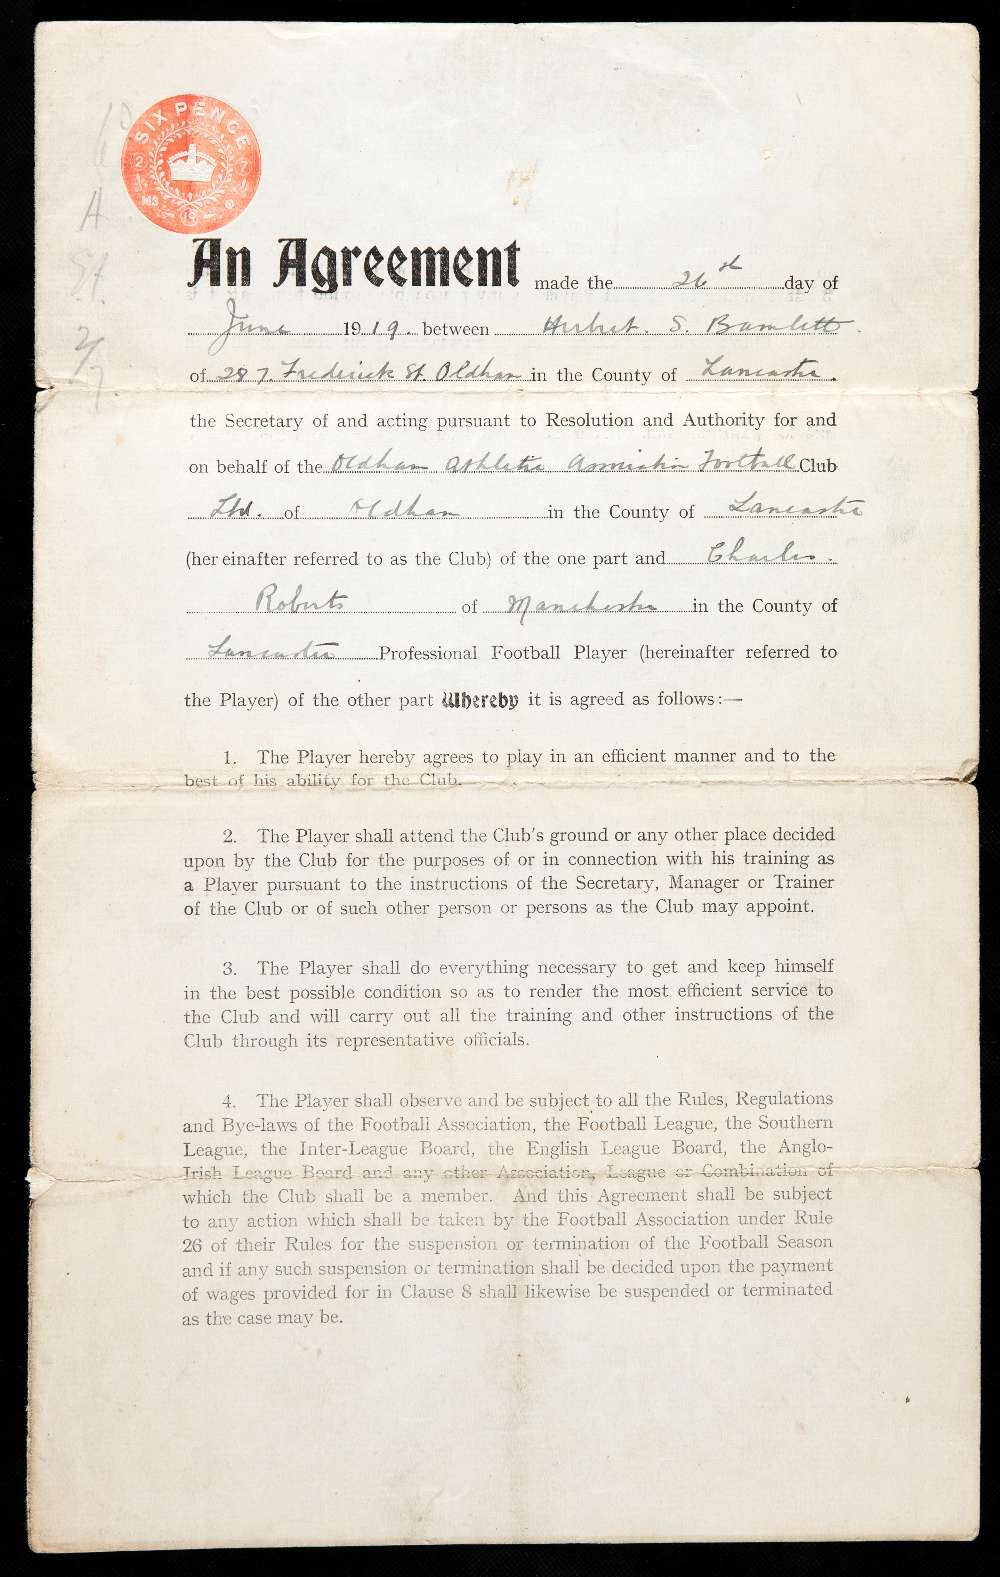 SIX PENCE
An Agreement made the 26th day of
June 1919. between Herbert. S. Bamlett.
of 287. Frederick St. Oldham in the County of Lancaster.
the Secretary of and acting pursuant to Resolution and Authority for and
on behalf of the Oldham Athletic Association Football Club
Ltd. of Oldham in the County of Lancaster
(hereinafter referred to as the Club) of the one part and Charles.
Roberts of Manchester in the County of
Lancaster Professional Football Player (hereinafter referred to
the Player) of the other part Whereby it is agreed as follows:—
1. The Player hereby agrees to play in an efficient manner and to the
best of his ability for the Club.
2. The Player shall attend the Club's ground or any other place decided
upon by the Club for the purposes of or in connection with his training as
a Player pursuant to the instructions of the Secretary, Manager or Trainer
of the Club or of such other person or persons as the Club may appoint.
3. The Player shall do everything necessary to get and keep himself
in the best possible condition so as to render the most efficient service to
the Club and will carry out all the training and other instructions of the
Club through its representative officials.
4. The Player shall observe and be subject to all the Rules, Regulations
and Bye-laws of the Football Association, the Football League, the Southern
League, the Inter-League Board, the English League Board, the Anglo-
Irish League Board and any other Association, League or Combination of
which the Club shall be a member. And this Agreement shall be subject
to any action which shall be taken by the Football Association under Rule
26 of their Rules for the suspension or termination of the Football Season
and if any such suspension or termination shall be decided upon the payment
of wages provided for in Clause 8 shall likewise be suspended or terminated
as the case may be.